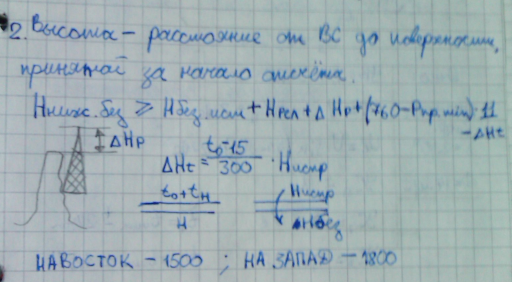 2. Высота – расстояние от ВС до поверхности,
принятой за начало отсчёта.
Hниж.без ≥ Hбез.ист + Hрел + ΔHр + (760 – Pпр.min)·11
– ΔHt
ΔHр
ΔHt = t₀-15/300 · Hиспр
t₀+tн
H
Hиспр
Hбез
НА ВОСТОК – 1500 ; НА ЗАПАД – 1800